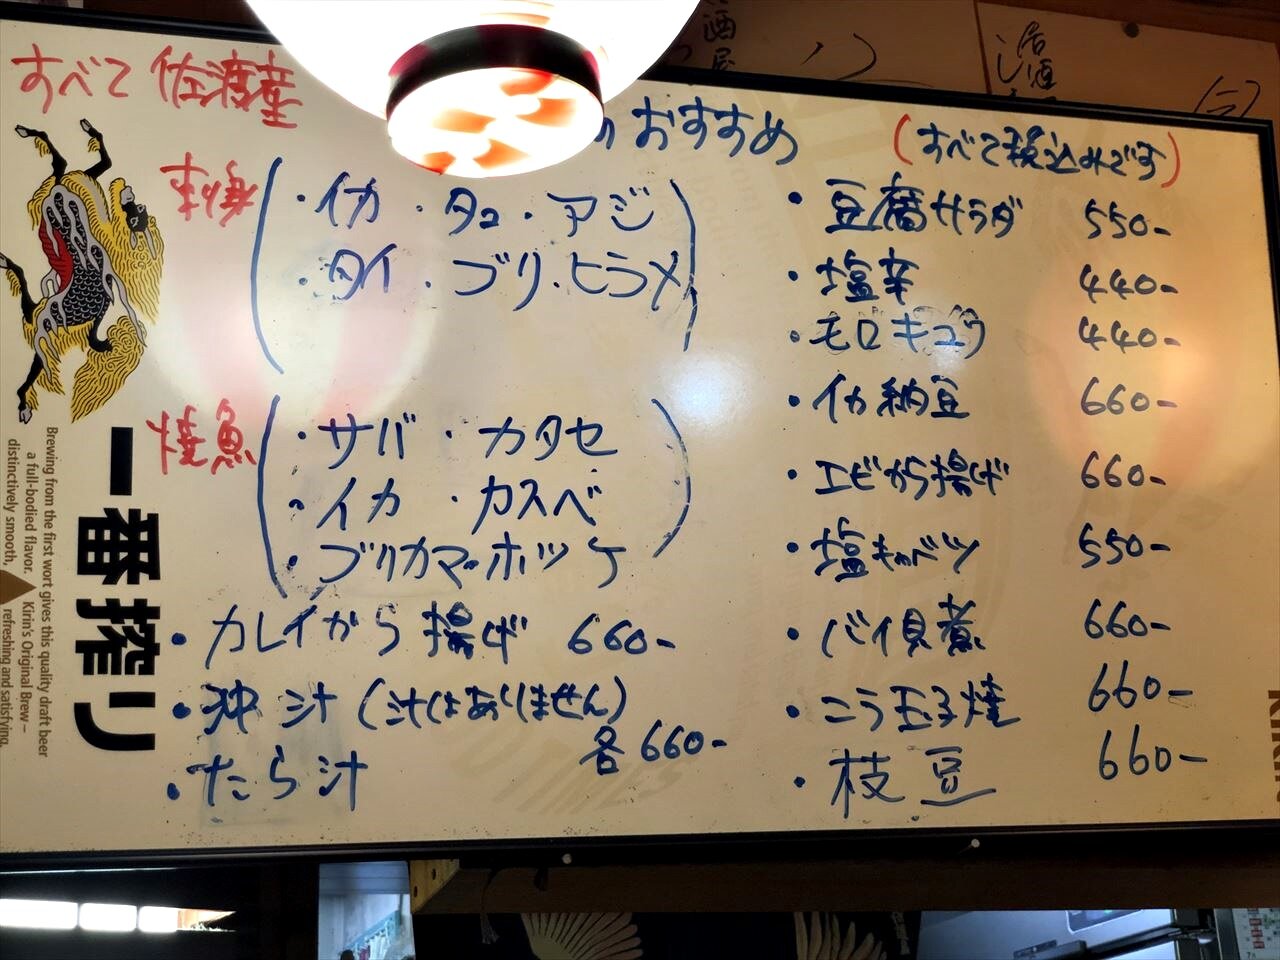 すべて 佐渡産
のおすすめ
(すべて税込みです)
刺身
・イカ ・タコ ・アジ
・タイ ・ブリ ・ヒラメ
焼魚
・サバ ・カタセ
・イカ ・カスベ
・ブリカマ ・ホッケ
・カレイから揚げ 660-
・沖汁 (汁はありません)
各660-
・たら汁
・豆腐サラダ 550-
・塩辛 440-
・モロキュウ 440-
・イカ納豆 660-
・エビから揚げ 660-
・塩キャベツ 550-
・バイ貝煮 660-
・ニラ玉子焼 660-
・枝豆 660-
一番搾り
Brewing from the first wort gives this quality draft beer
a full-bodied flavor. Kirin's Original Brew –
distinctively smooth, refreshing and satisfying.